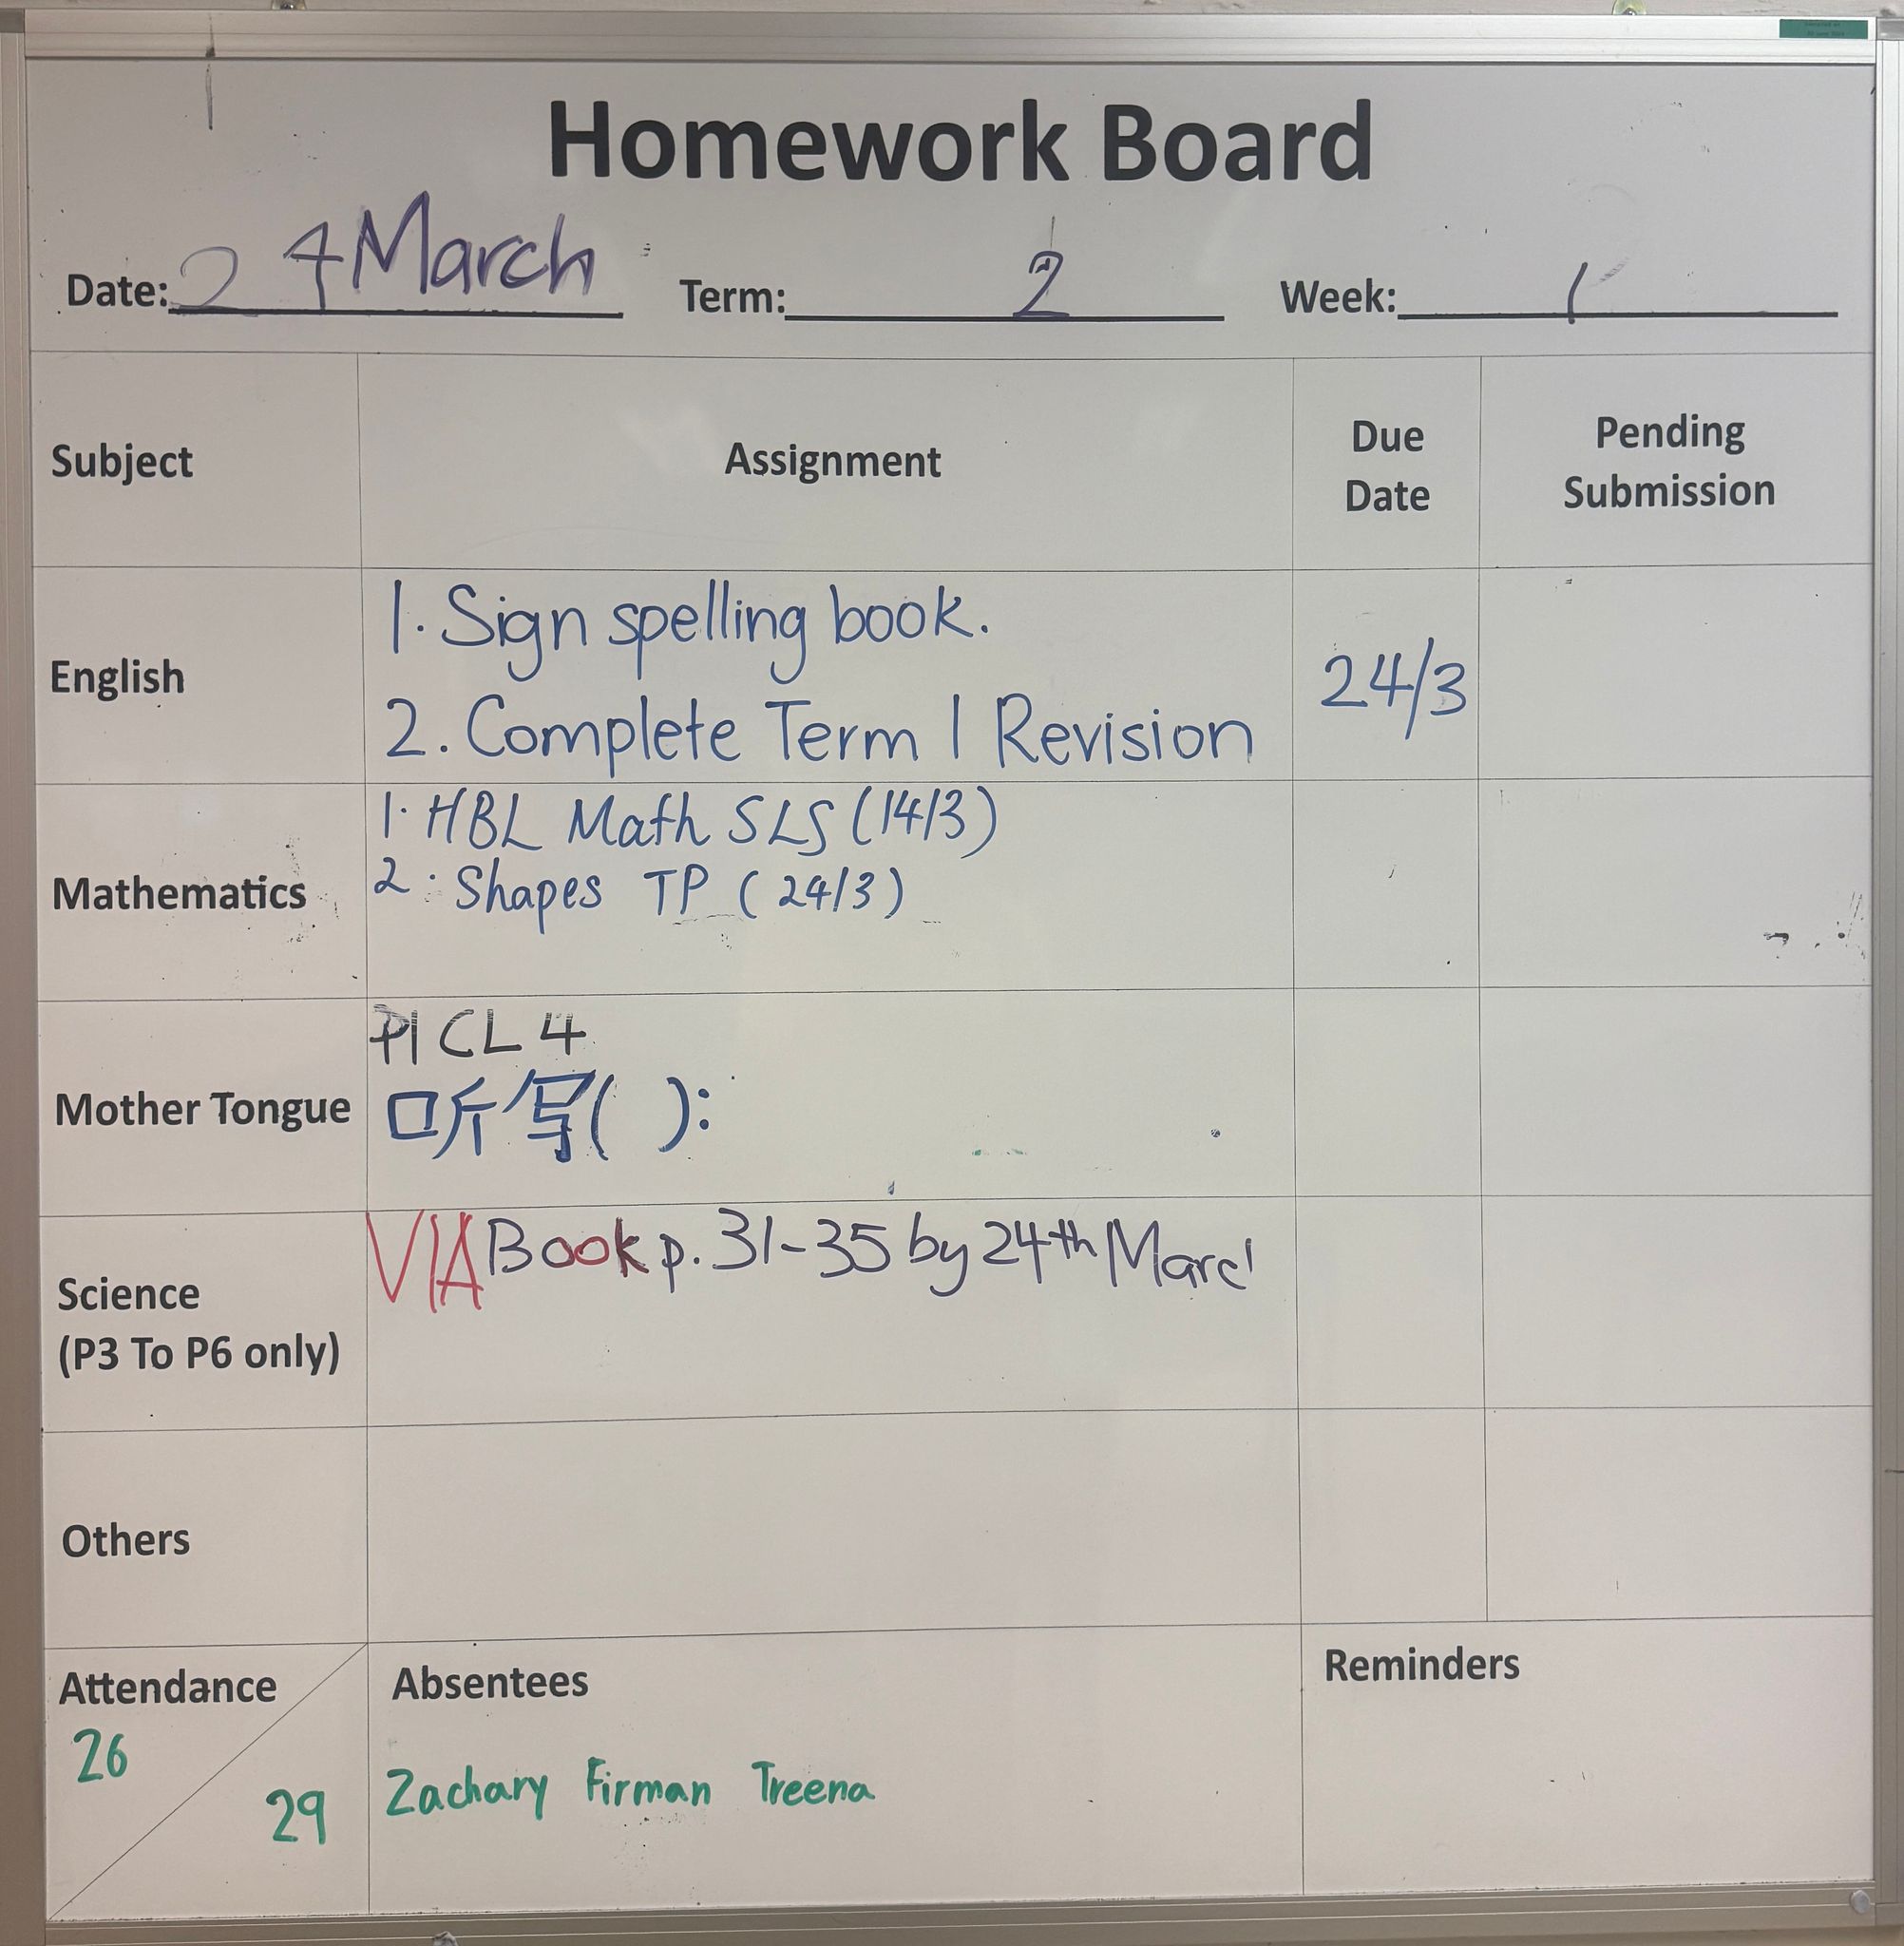 Homework Board
Date: 24 March Term: 2 Week: 1
Subject Assignment Due Date Pending Submission
English
1. Sign spelling book.
2. Complete Term 1 Revision
24/3
Mathematics
1. HBL Math SLS (14/3)
2. Shapes TP (24/3)
Mother Tongue
CL 4
听写( ):
Science
(P3 To P6 only)
VIA Book p. 31-35 by 24th Marc
Others
Attendance
26
29
Absentees
Zachary Firman Treena
Reminders